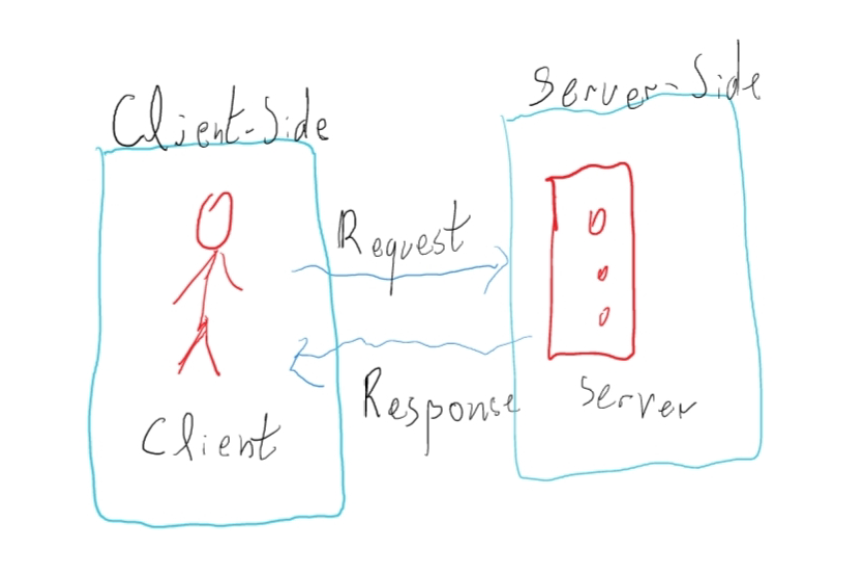 Client-Side
Server-Side
Request
Response
Client
Server